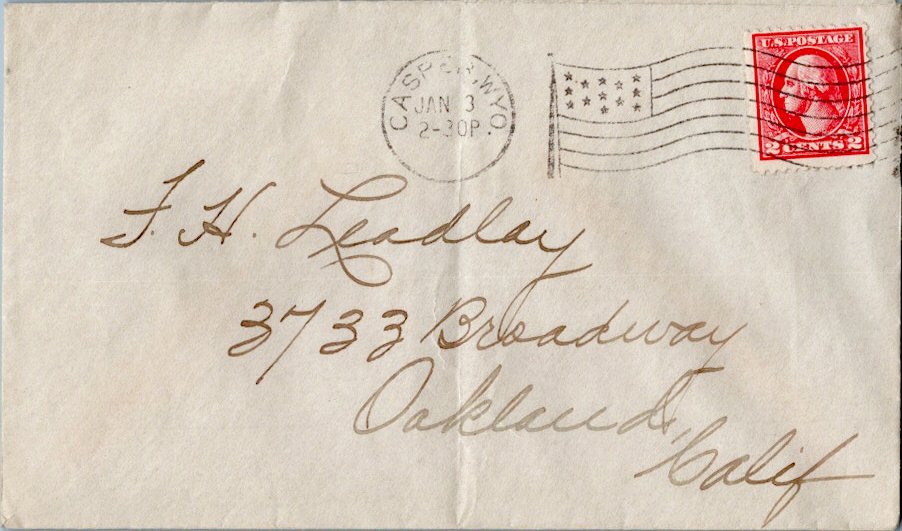 CASPER, WYO.
JAN 3
2-30P.
U.S. POSTAGE
2 CENTS 2
F. H. Leadlay
3733 Broadway
Oakland,
Calif